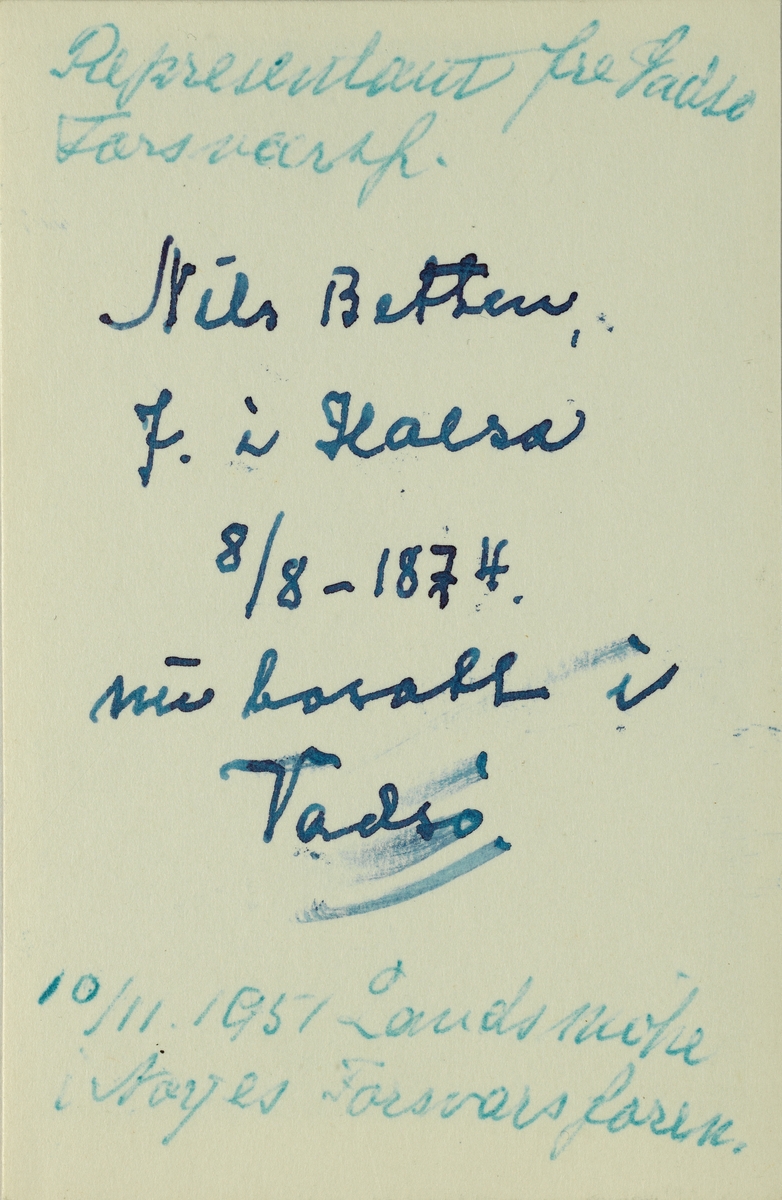 Representant fra Vadsø
Forsvarsf.
Nils Betten,
f. i Halsa
8/8 - 1874.
nu bosatt i
Vadsö.
10/11. 1951 Landsmöte
i Norges Forsvarsforen.